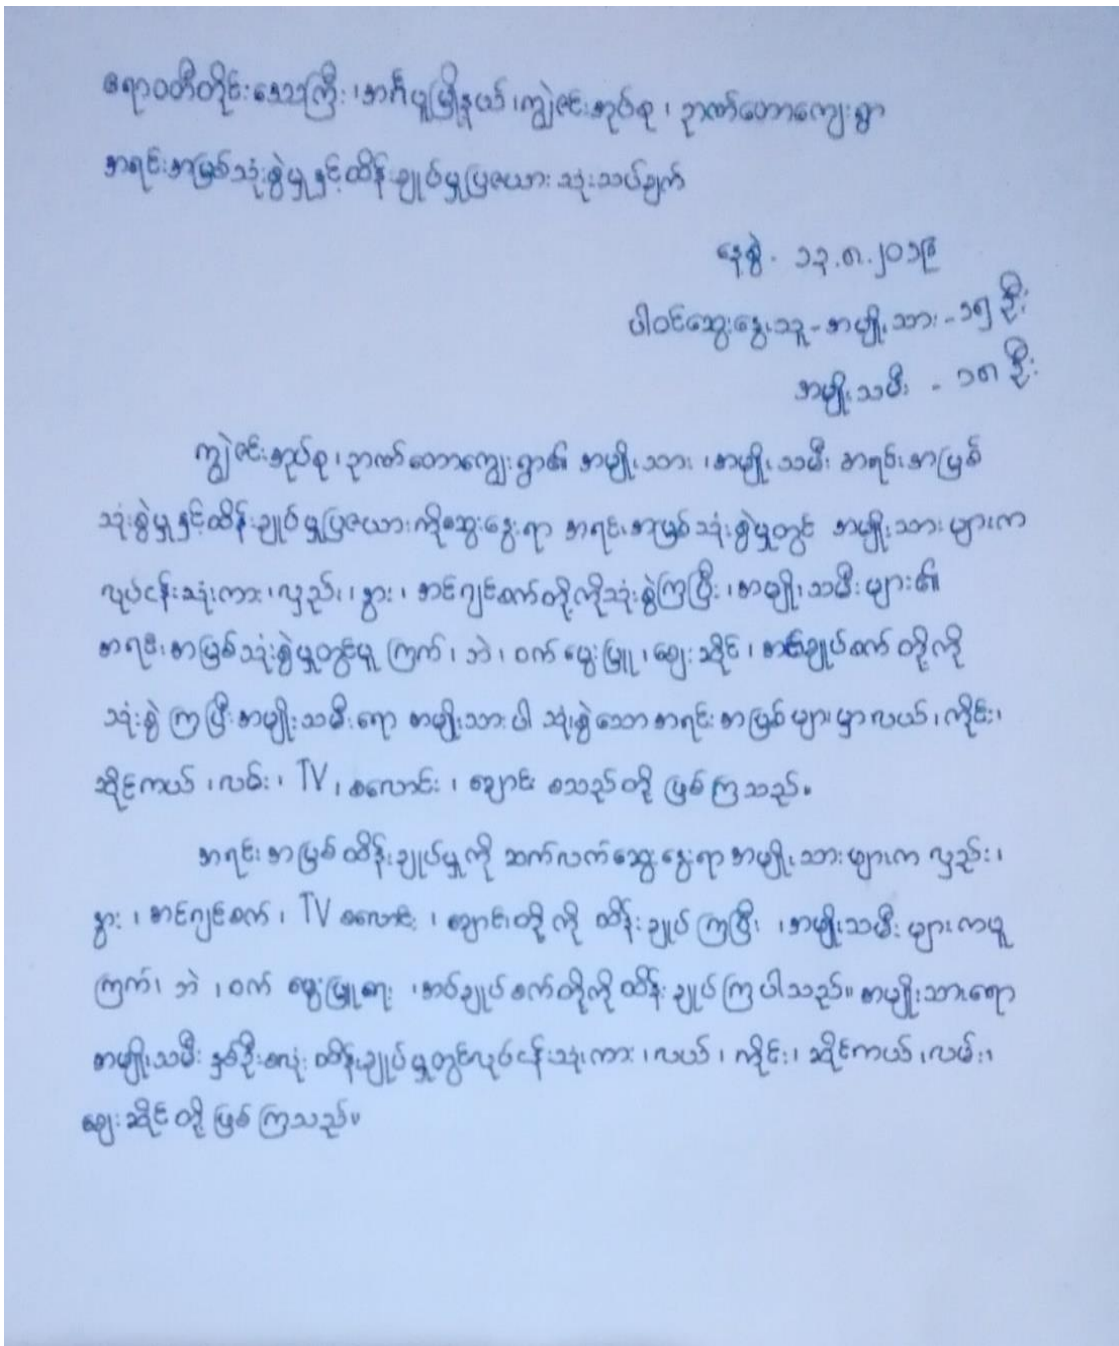 ဧရာဝတီတိုင်းဒေသကြီး၊ အင်္ဂပူမြို့နယ်၊ ကျွဲဇင်းအုပ်စု၊ ဉာဏ်တောကျေးရွာ
အရင်းအမြစ်သုံးစွဲမှုနှင့်ထိန်းချုပ်မှုပြဇယား သုံးသပ်ချက်
နေ့စွဲ - ၁၃.၈.၂၀၁၉
ပါဝင်ဆွေးနွေးသူ - အမျိုးသား - ၁၅ ဦး
အမျိုးသမီး - ၁၈ ဦး
ကျွဲဇင်းအုပ်စု၊ ဉာဏ်တောကျေးရွာ၏ အမျိုးသား၊ အမျိုးသမီး အရင်းအမြစ်
သုံးစွဲမှုနှင့်ထိန်းချုပ်မှုပြဇယားကိုဆွေးနွေးရာ အရင်းအမြစ်သုံးစွဲမှုတွင် အမျိုးသားများက
လုပ်ငန်းသုံးကား၊ လှည်း၊ နွား၊ အင်ဂျင်စက်တို့ကိုသုံးစွဲကြပြီး၊ အမျိုးသမီးများ၏
အရင်းအမြစ်သုံးစွဲမှုတွင်မူ ကြက်၊ ဘဲ၊ ဝက် မွေးမြူ၊ ဈေးဆိုင်၊ အပ်ချုပ်စက် တို့ကို
သုံးစွဲ ကြပြီးအမျိုးသမီးရော အမျိုးသားပါ သုံးစွဲသောအရင်းအမြစ်များမှာလယ်၊ ကိုင်း၊
ဆိုင်ကယ်၊ လမ်း၊ TV၊ စလောင်း၊ ချောင်း စသည်တို့ ဖြစ်ကြသည်။
အရင်းအမြစ်ထိန်းချုပ်မှုကို ဆက်လက်ဆွေးနွေးရာ အမျိုးသားများက လှည်း၊
နွား၊ အင်ဂျင်စက်၊ TV စလောင်း၊ ချောင်းတို့ကို ထိန်းချုပ်ကြပြီး၊ အမျိုးသမီးများကမူ
ကြက်၊ ဘဲ၊ ဝက် မွေးမြူရေး၊ အပ်ချုပ်စက်တို့ကိုထိန်းချုပ်ကြပါသည်။ အမျိုးသားရော
အမျိုးသမီး နှစ်ဦးစလုံး ထိန်းချုပ်မှုတွင်လုပ်ငန်းသုံးကား၊ လယ်၊ ကိုင်း၊ ဆိုင်ကယ်၊ လမ်း၊
ဈေးဆိုင်တို့ ဖြစ်ကြသည်။